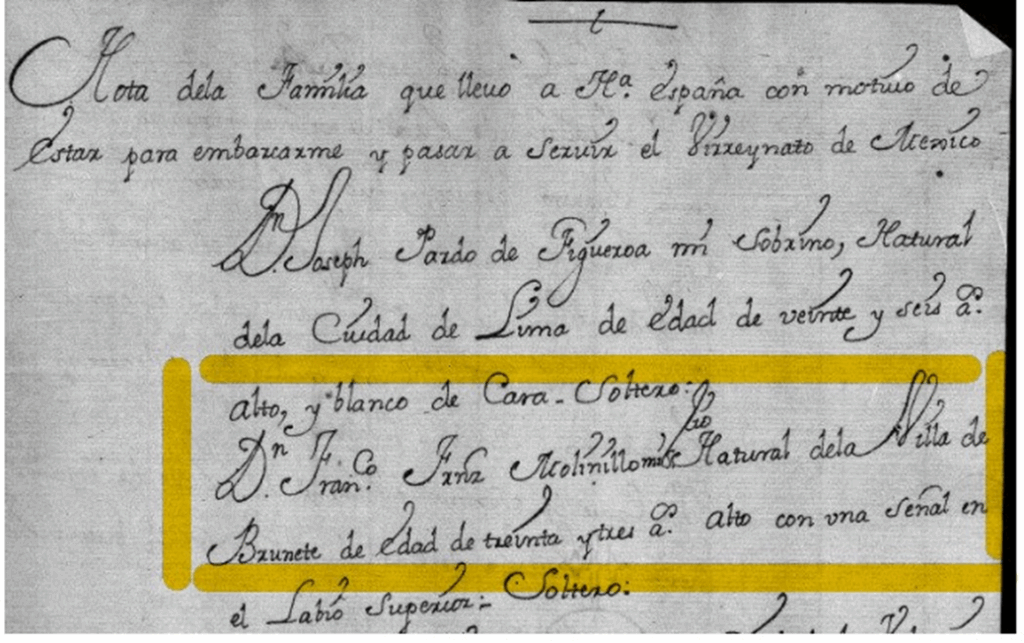 Nota dela Familia que lleuo a Na. España con motiuo de
Estar para embarcarme y pasar a seruir el Virreynato de Mexico
Dn. Joseph Pardo de Figueroa mi Sobrino, Natural
dela Ciudad de Lima de edad de veinte y seis as.
alto, y blanco de Cara - Soltero:
Dn. Franco. Frnz Molinillo mi Srio Natural dela Villa de
Brunete de edad de treinta y tres as. alto con vna señal en
el Labio Superior:- Soltero: